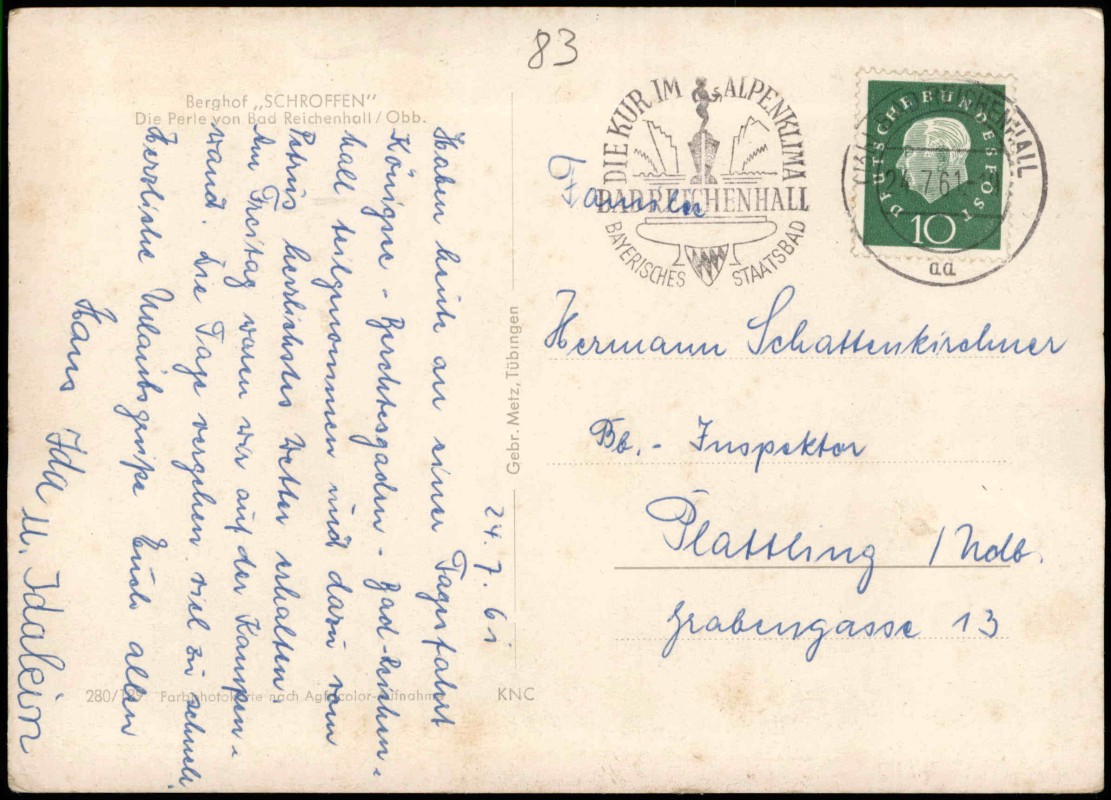 83
Berghof „SCHROFFEN"
Die Perle von Bad Reichenhall / Obb.
24. 7. 61
Haben heute an einer Tagesfahrt
Königsee - Berchtesgaden - Bad-Reichen-
hall teilgenommen und dazu vom
Petrus herrlichstes Wetter erhalten.
Am Freitag waren wir auf der Kampen-
wand. Die Tage vergehen viel zu schnell.
Herzliche Urlaubsgrüße Euch allen
Hans Ida u. Idalein
280/199 Farbphotokarte nach Agfacolor-Aufnahme
KNC
Gebr. Metz, Tübingen
DIE KUR IM ALPENKLIMA
BAD REICHENHALL
BAYERISCHES STAATSBAD
DEUTSCHE BUNDESPOST
10
REICHENHALL
24.7.61
aa
Familie
Hermann Schattenkirchner
Bb. - Inspektor
Plattling / Ndb.
Grabengasse 13